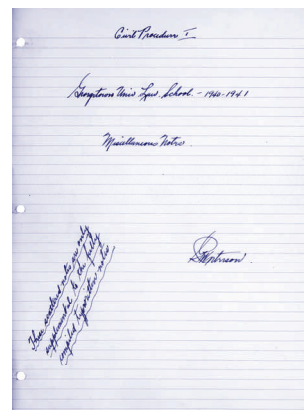 Civil Procedure I
Georgetown Univ Law School. - 1940-1941
Miscellaneous Notes
These scattered notes are only
supplemental to the fully
compiled typewritten notes